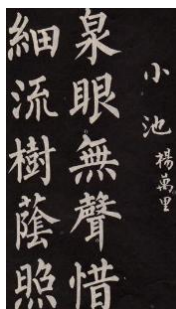 小池 楊萬里
泉眼無聲惜
細流樹蔭照